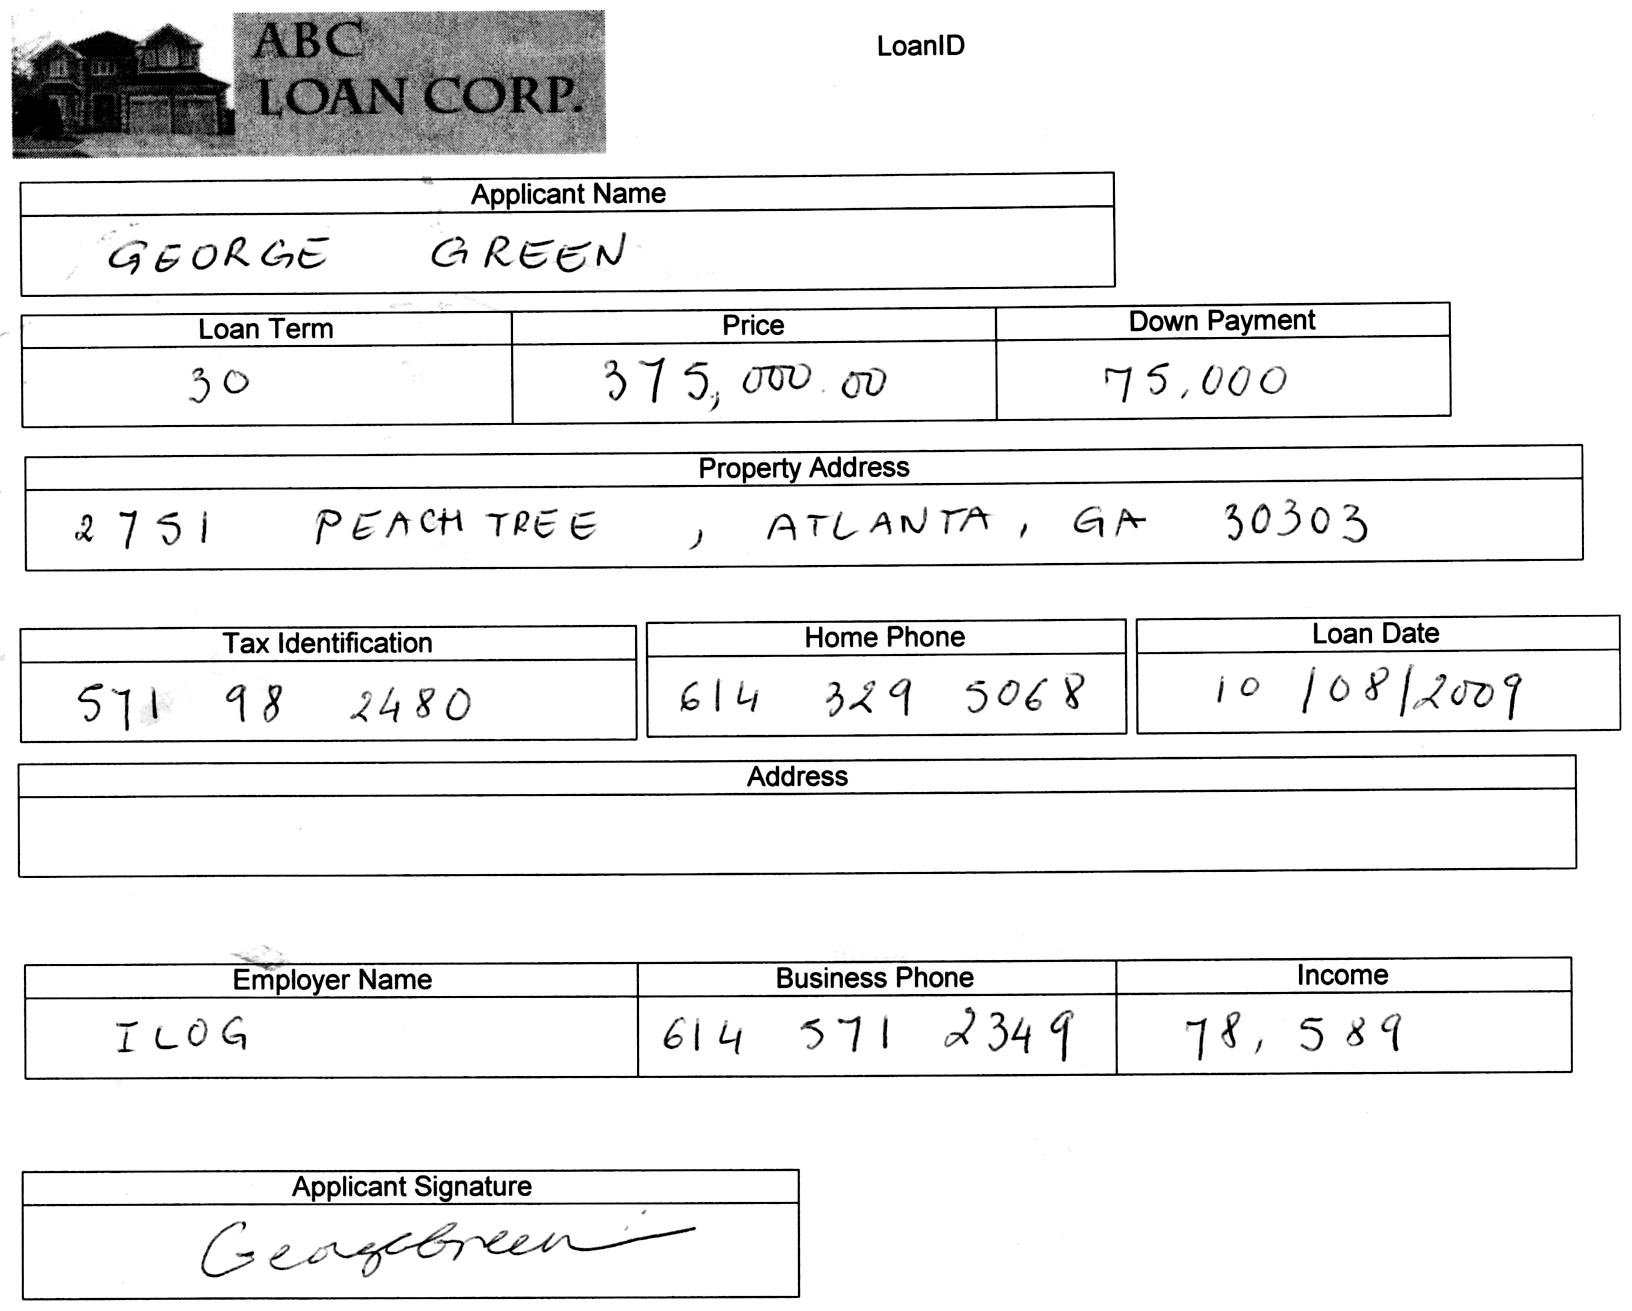 ABC
LOAN CORP.
LoanID
Applicant Name
GEORGE GREEN
Loan Term Price Down Payment
30 375,000.00 75,000
Property Address
2751 PEACHTREE , ATLANTA, GA 30303
Tax Identification Home Phone Loan Date
571 98 2480 614 329 5068 10/08/2009
Address
Employer Name Business Phone Income
ILOG 614 571 2349 78,589
Applicant Signature
George Green